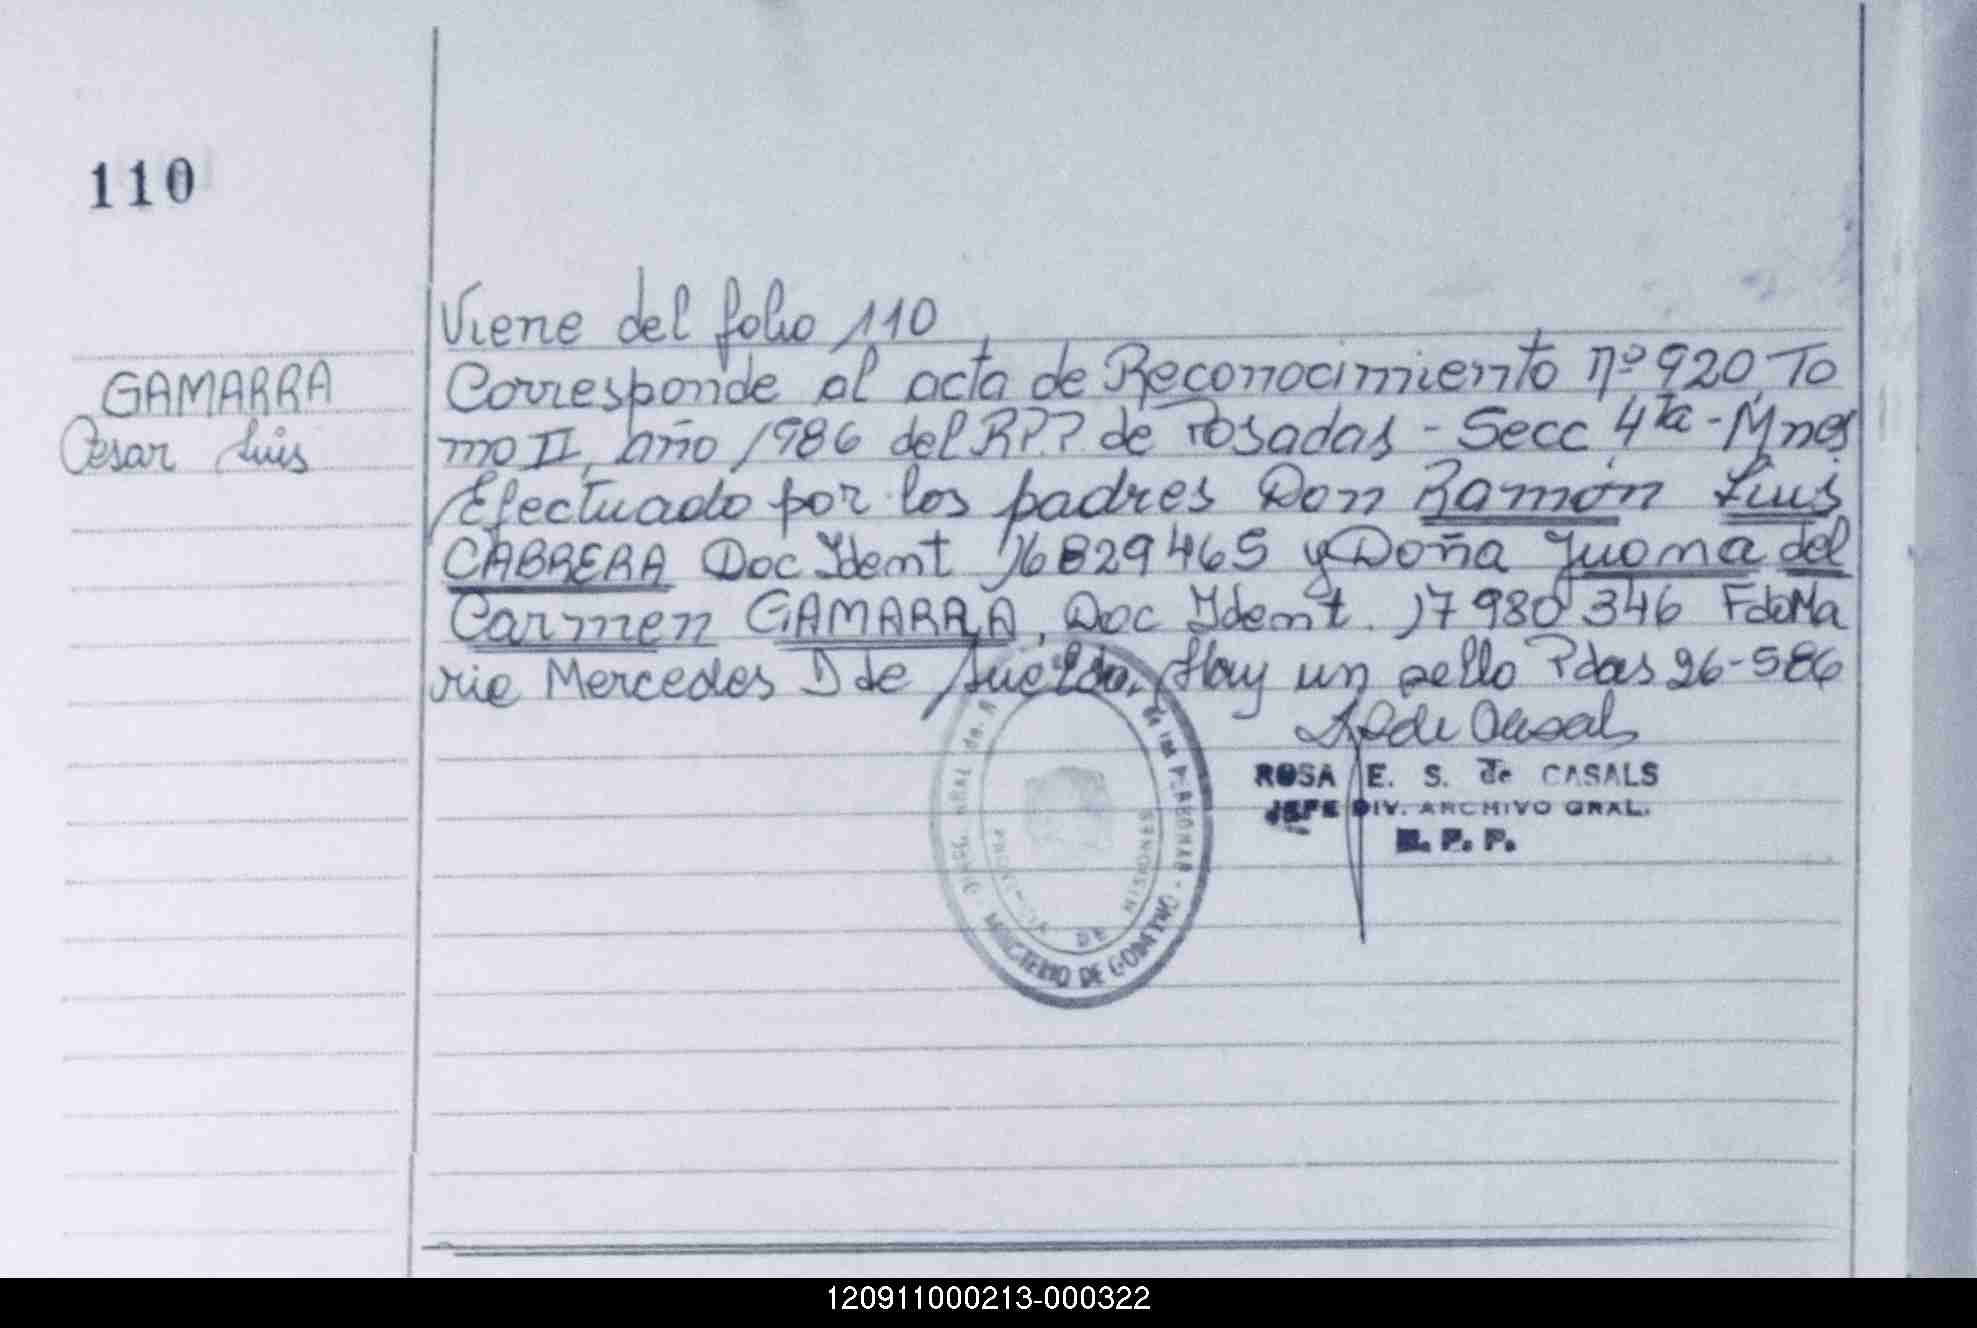 110
Viene del folio 110
GAMARRA
Cesar Luis
Corresponde al acta de Reconocimiento nº 920, To
mo II, año 1986 del R.P.P. de Posadas - Secc 4ta - Mnes
Efectuado por los padres Don Ramón Luis
CABRERA Doc Ident 16829465 y Doña Juana del
Carmen GAMARRA, Doc Ident. 17980346 Fdo Ma
ria Mercedes D de Sueldo, Hay un sello Pdas 26-586
ROSA E. S. de CASALS
JEFE DIV. ARCHIVO GRAL.
R. P. P.
de las PERSONAS - MINISTERIO DE GOBIERNO
PROVINCIA DE MISIONES
120911000213-000322